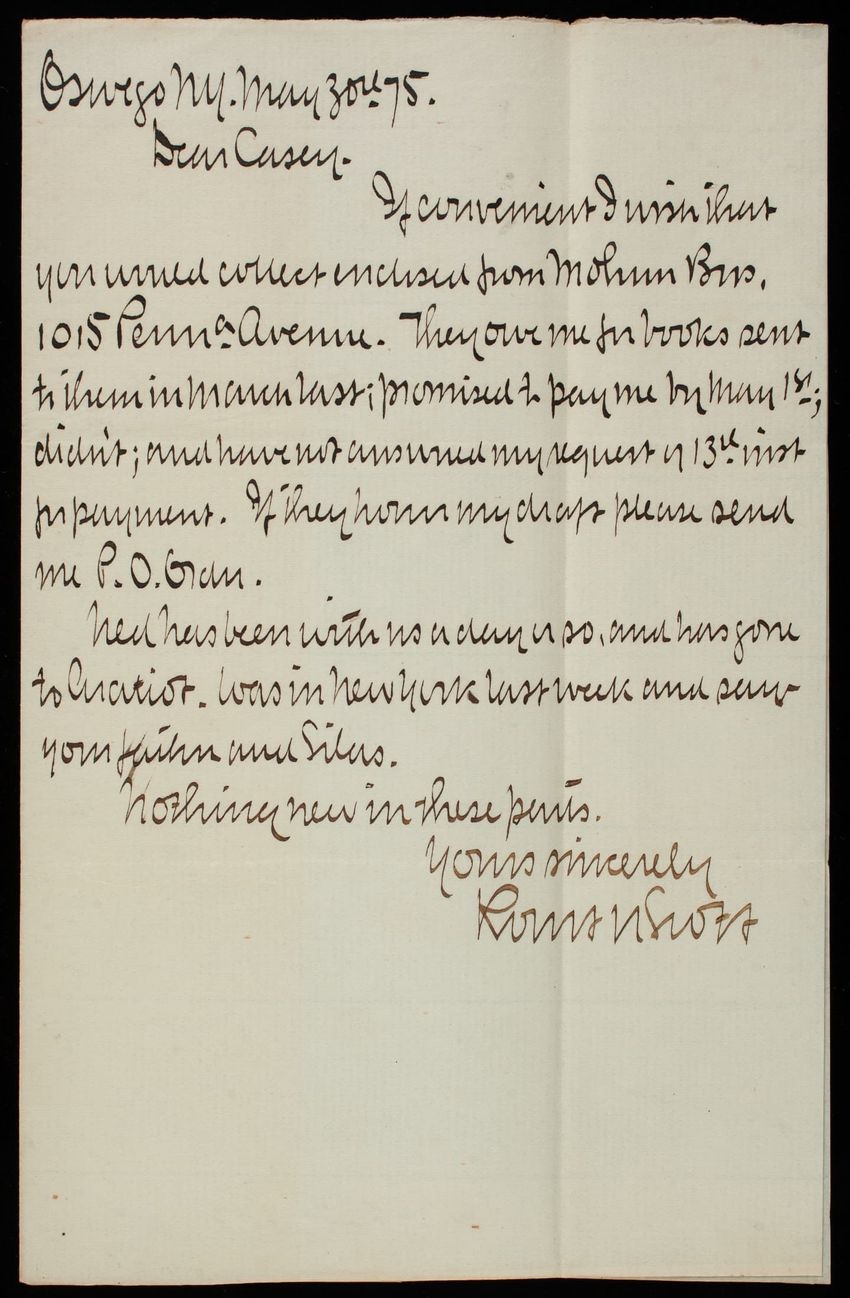 Oswego NY. May 30th 75.
Dear Casey.
If convenient I wish that
you would collect enclosed from Mohun Bros.
1015 Penna Avenue. They owe me for books sent
to them in March last; promised to pay me by May 1st;
didn't; and have not answered my request of 13th inst
for payment. If they honor my draft please send
me P. O. Order.
Ned has been with us a day or so, and has gone
to Gratiot. Was in New York last week and saw
your father and Silas.
Nothing new in these parts.
Yours sincerely
Robert N Scott